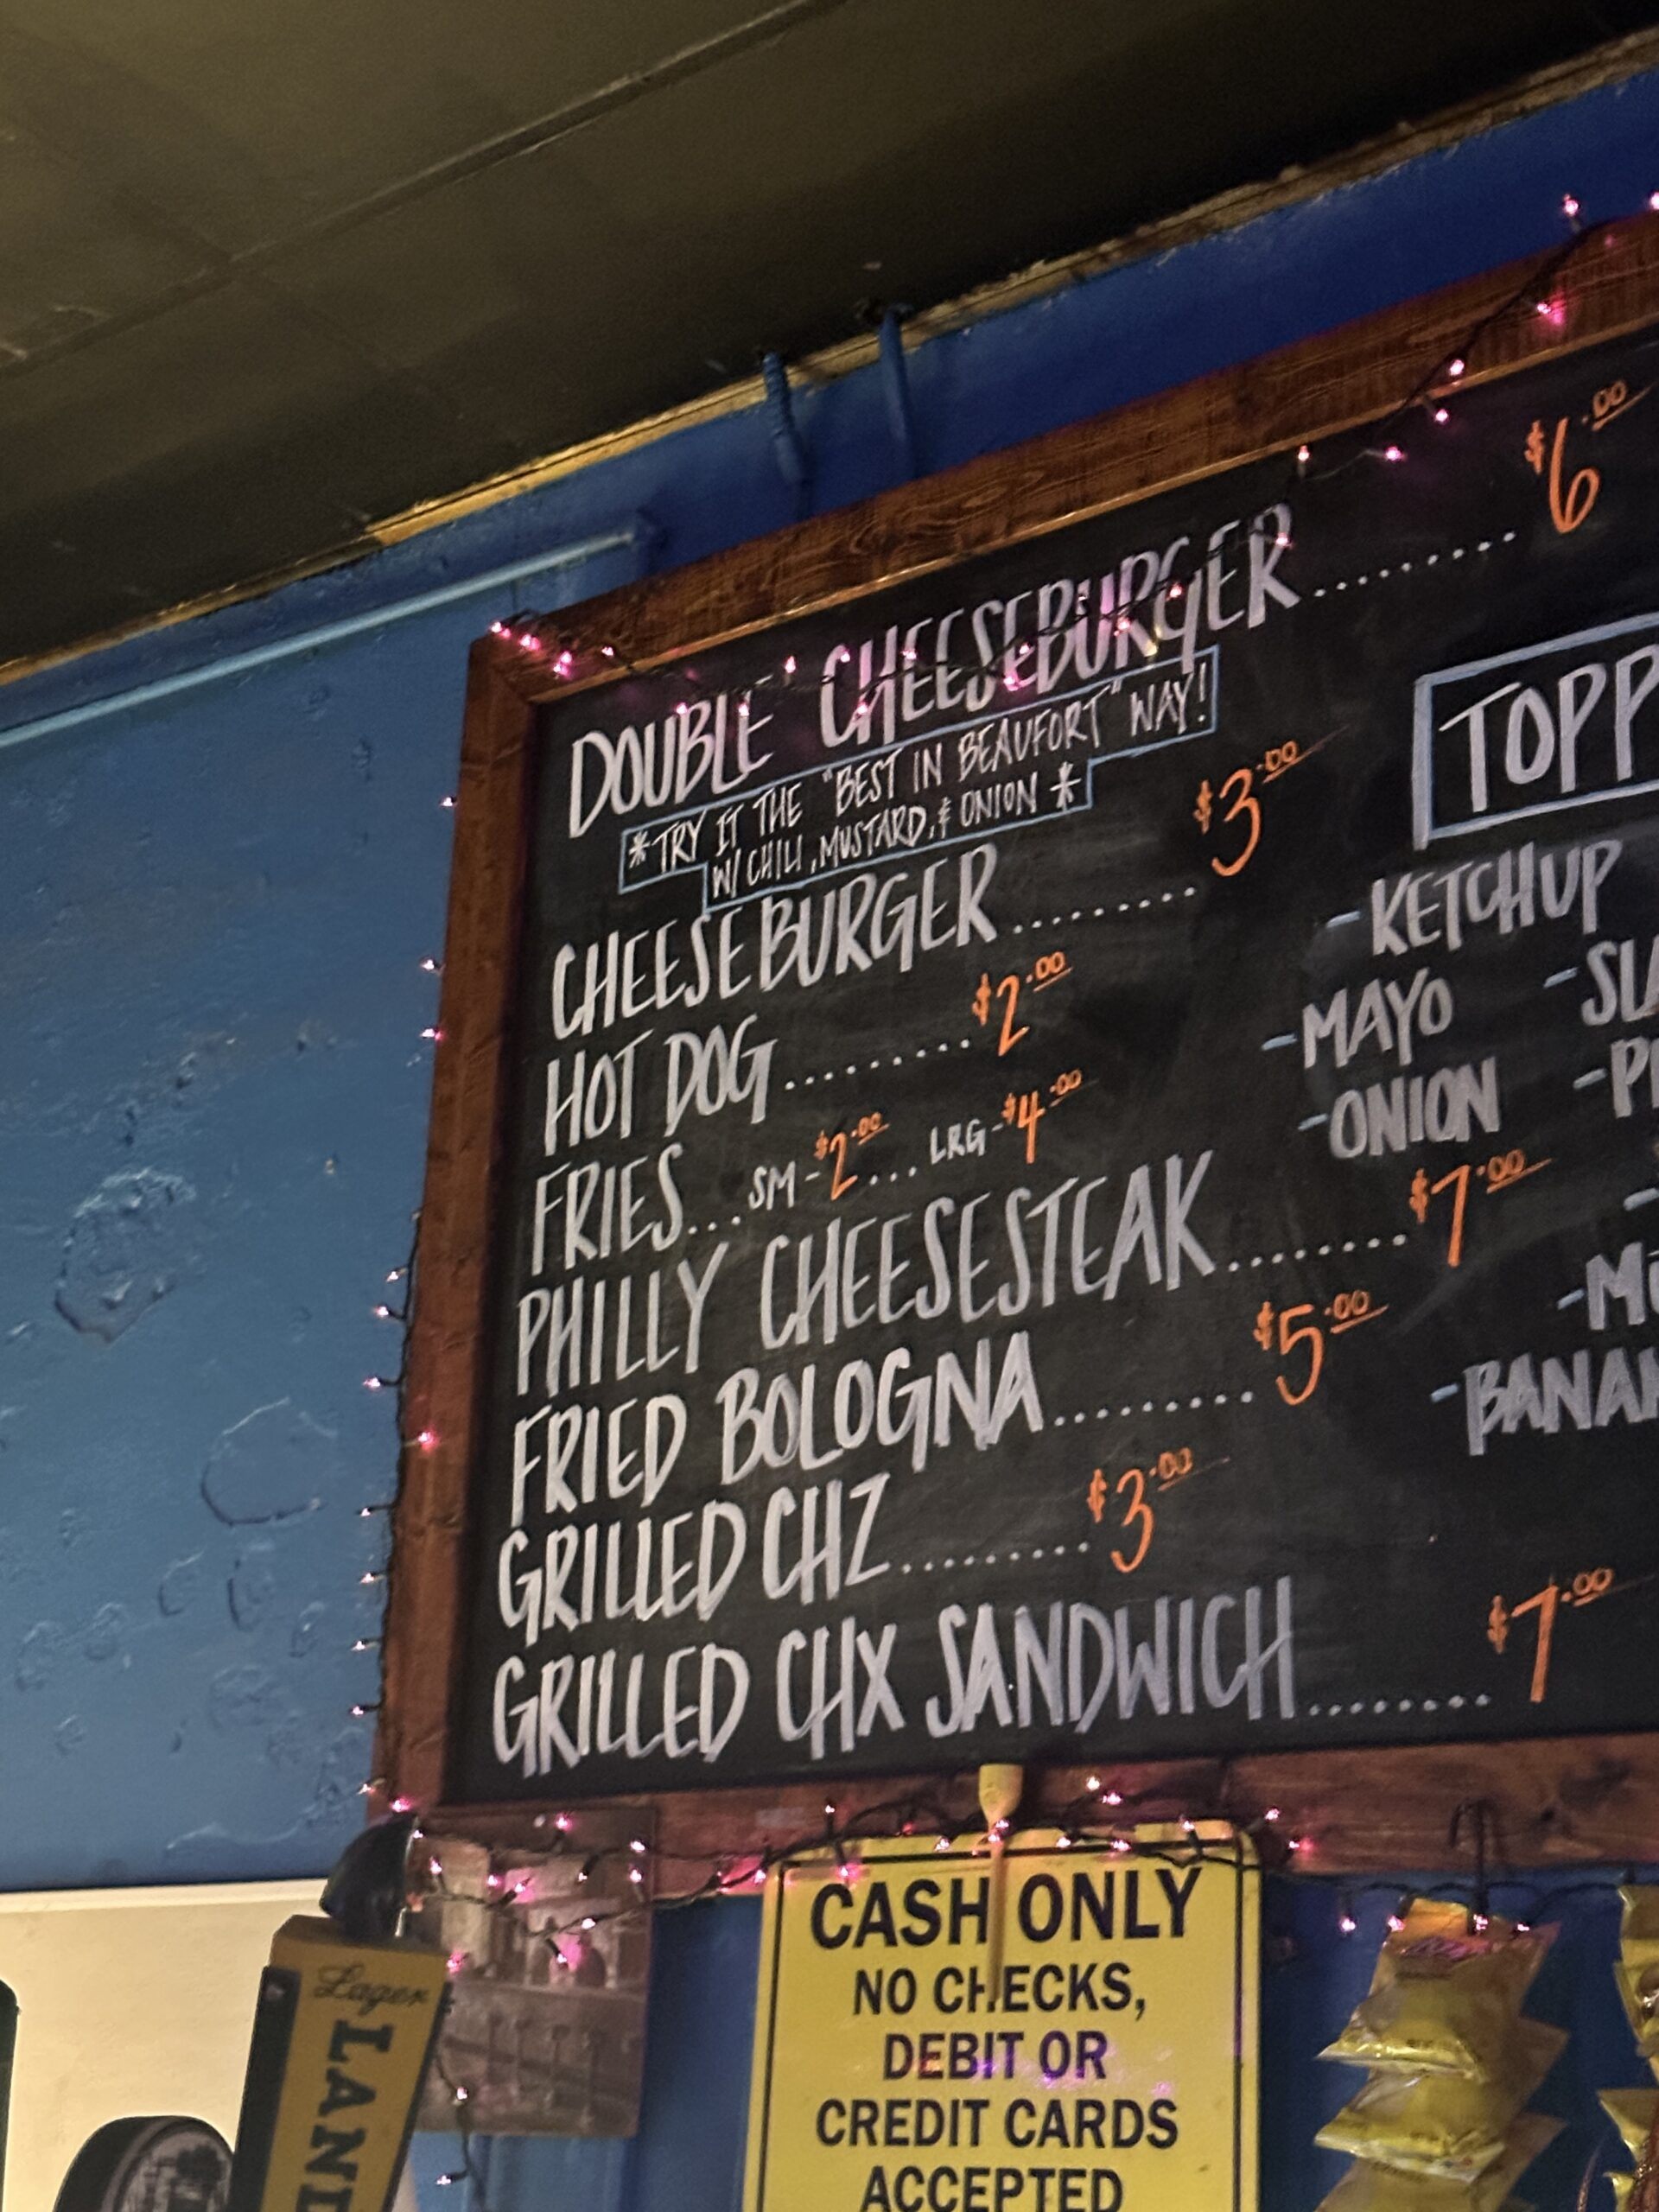 DOUBLE CHEESEBURGER......... $6.00
*TRY IT THE "BEST IN BEAUFORT" WAY!
W/ CHILI, MUSTARD, & ONION *
CHEESEBURGER......... $3.00
HOT DOG......... $2.00
FRIES...SM-$2.00... LRG-$4.00
PHILLY CHEESESTEAK........ $7.00
FRIED BOLOGNA......... $5.00
GRILLED CHZ......... $3.00
GRILLED CHX SANDWICH........ $7.00
TOPP
-KETCHUP
-MAYO -SLA
-ONION
-MU
-BANAN
CASH ONLY
NO CHECKS,
DEBIT OR
CREDIT CARDS
ACCEPTED
Lager
LAND